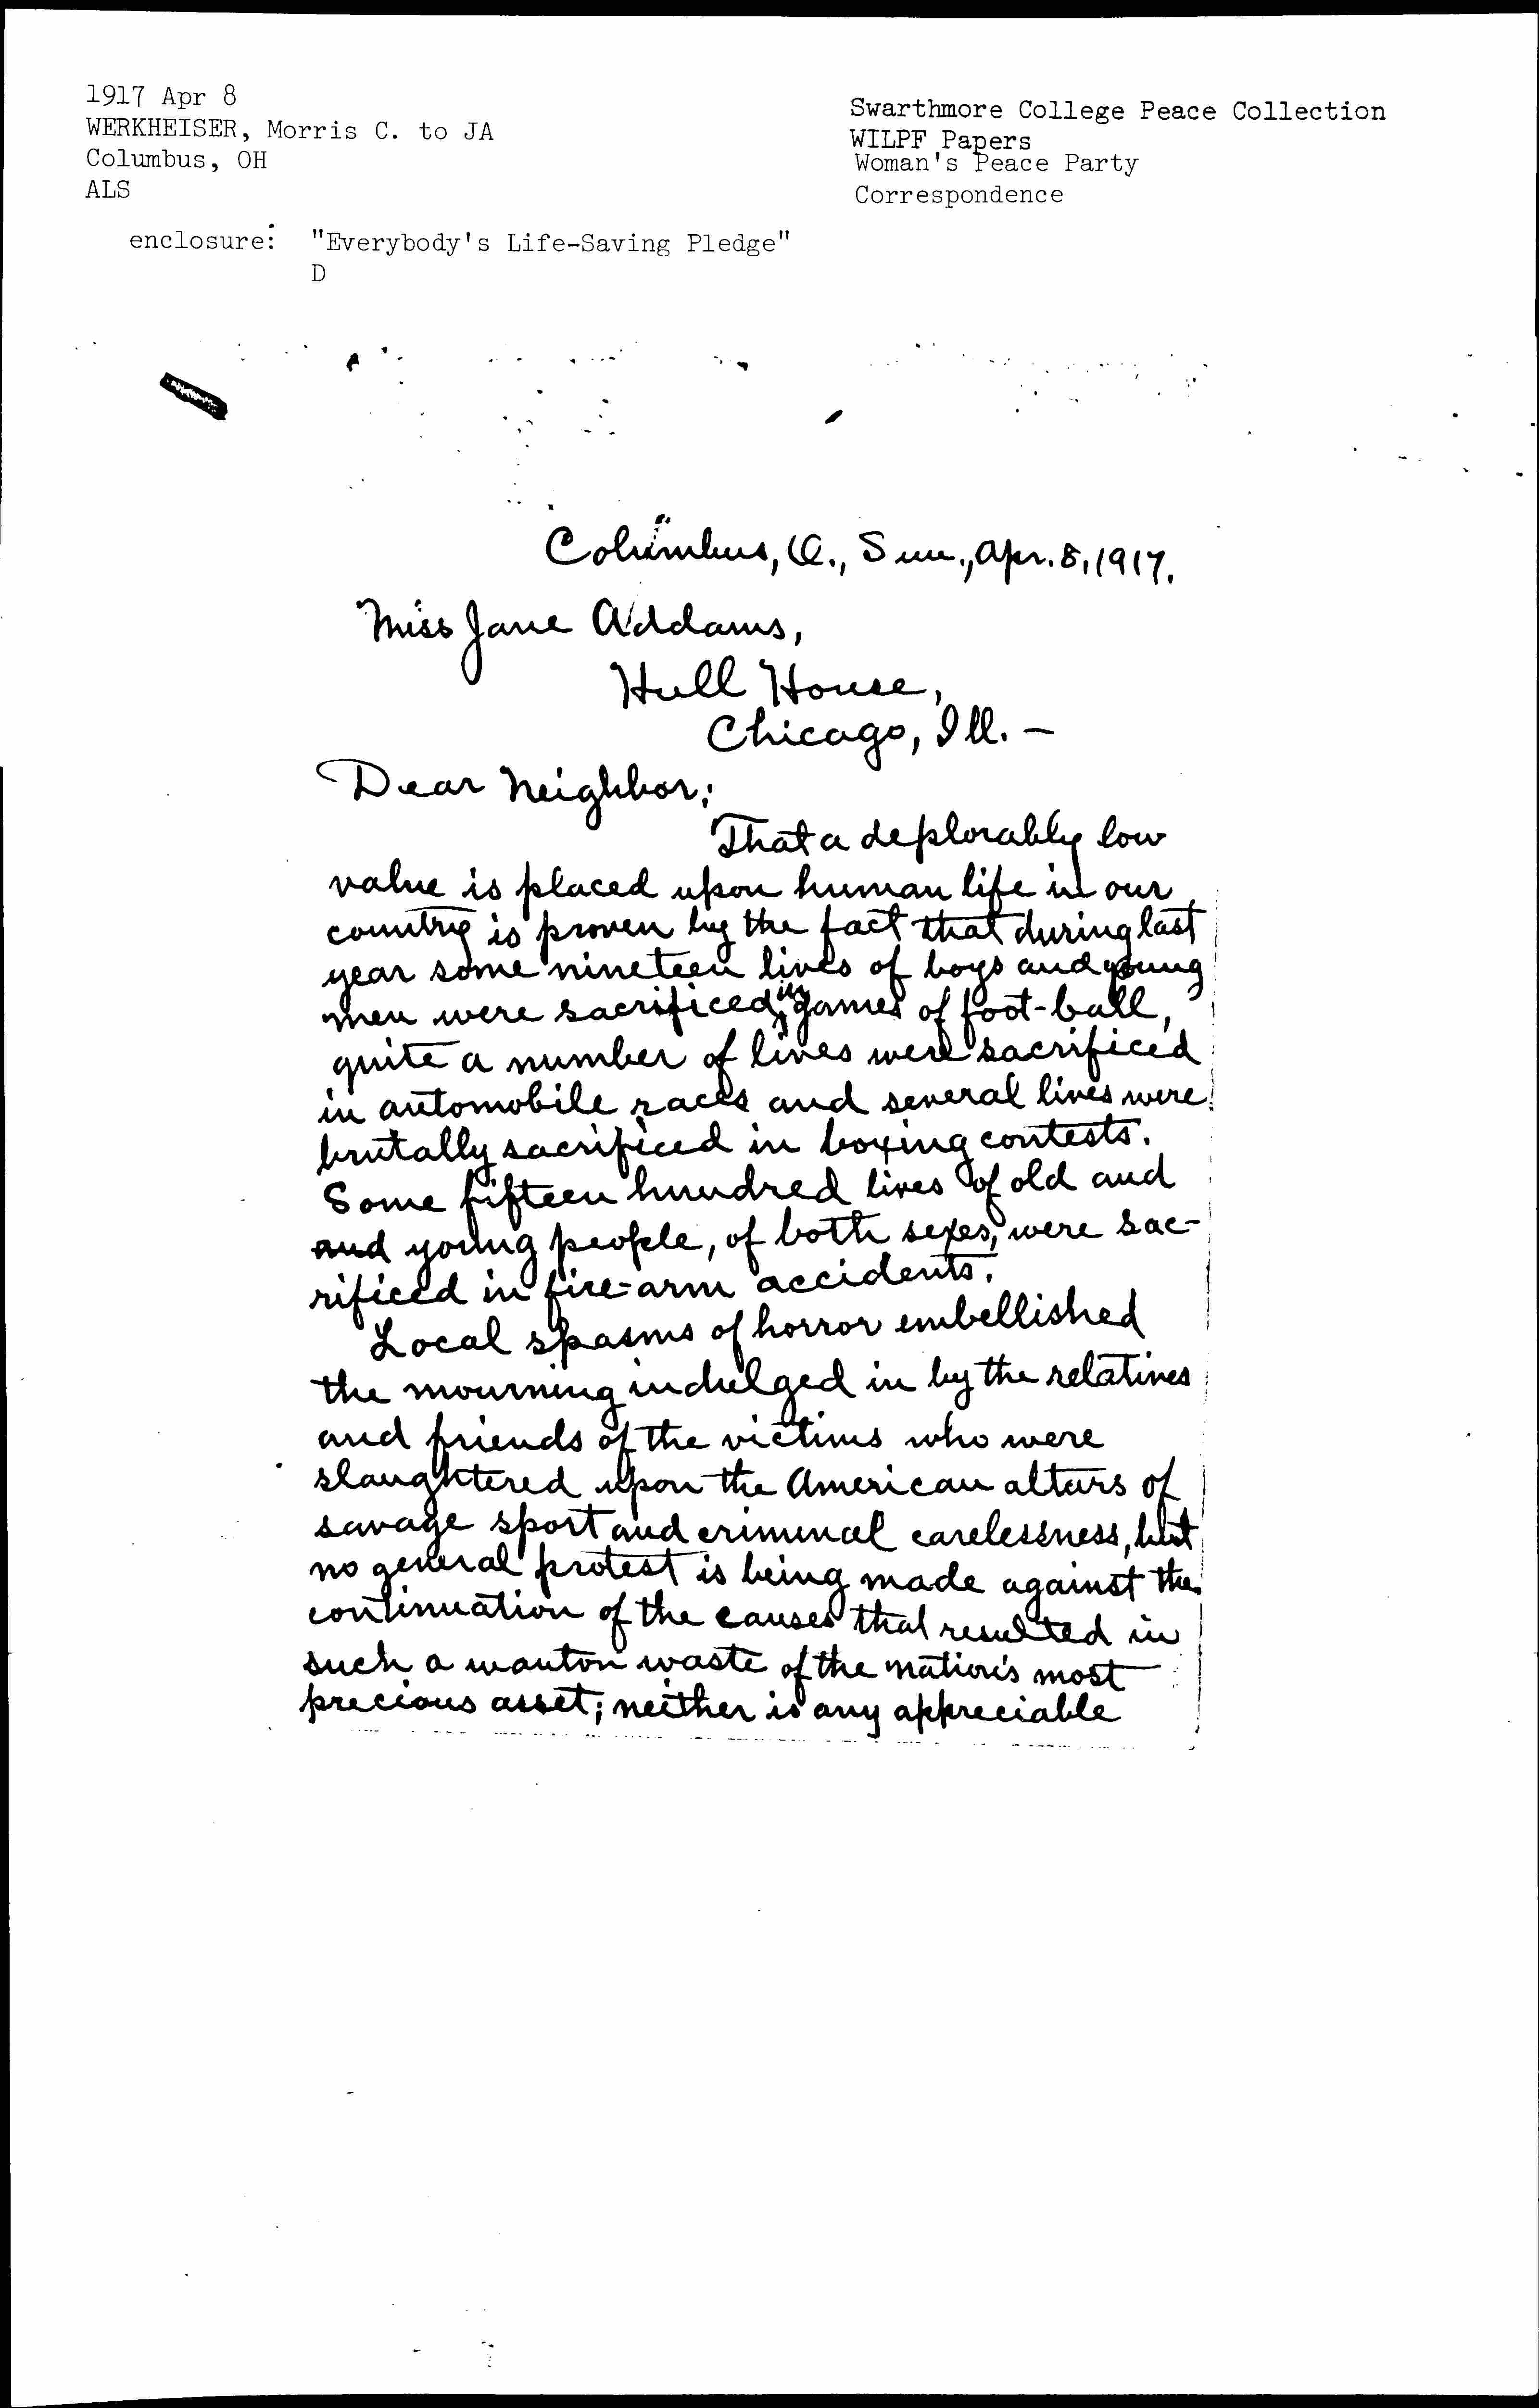 1917 Apr 8
WERKHEISER, Morris C. to JA
Columbus, OH
ALS
enclosure: "Everybody's Life-Saving Pledge"
D
Swarthmore College Peace Collection
WILPF Papers
Woman's Peace Party
Correspondence
Columbus, O., Sun., Apr. 8, 1917.
Miss Jane Addams,
Hull House,
Chicago, Ill. —
Dear Neighbor:
That a deplorably low
value is placed upon human life in our
country is proven by the fact that during last
year some nineteen lives of boys and young
men were sacrificed in games of foot-ball,
quite a number of lives were sacrificed
in automobile races and several lives were
brutally sacrificed in boxing contests.
Some fifteen hundred lives of old and
and young people, of both sexes, were sac-
rificed in fire-arm accidents.
Local spasms of horror embellished
the mourning indulged in by the relatives
and friends of the victims who were
slaughtered upon the American altars of
savage sport and criminal carelessness, but
no general protest is being made against the
continuation of the causes that resulted in
such a wanton waste of the nation's most
precious asset; neither is any appreciable